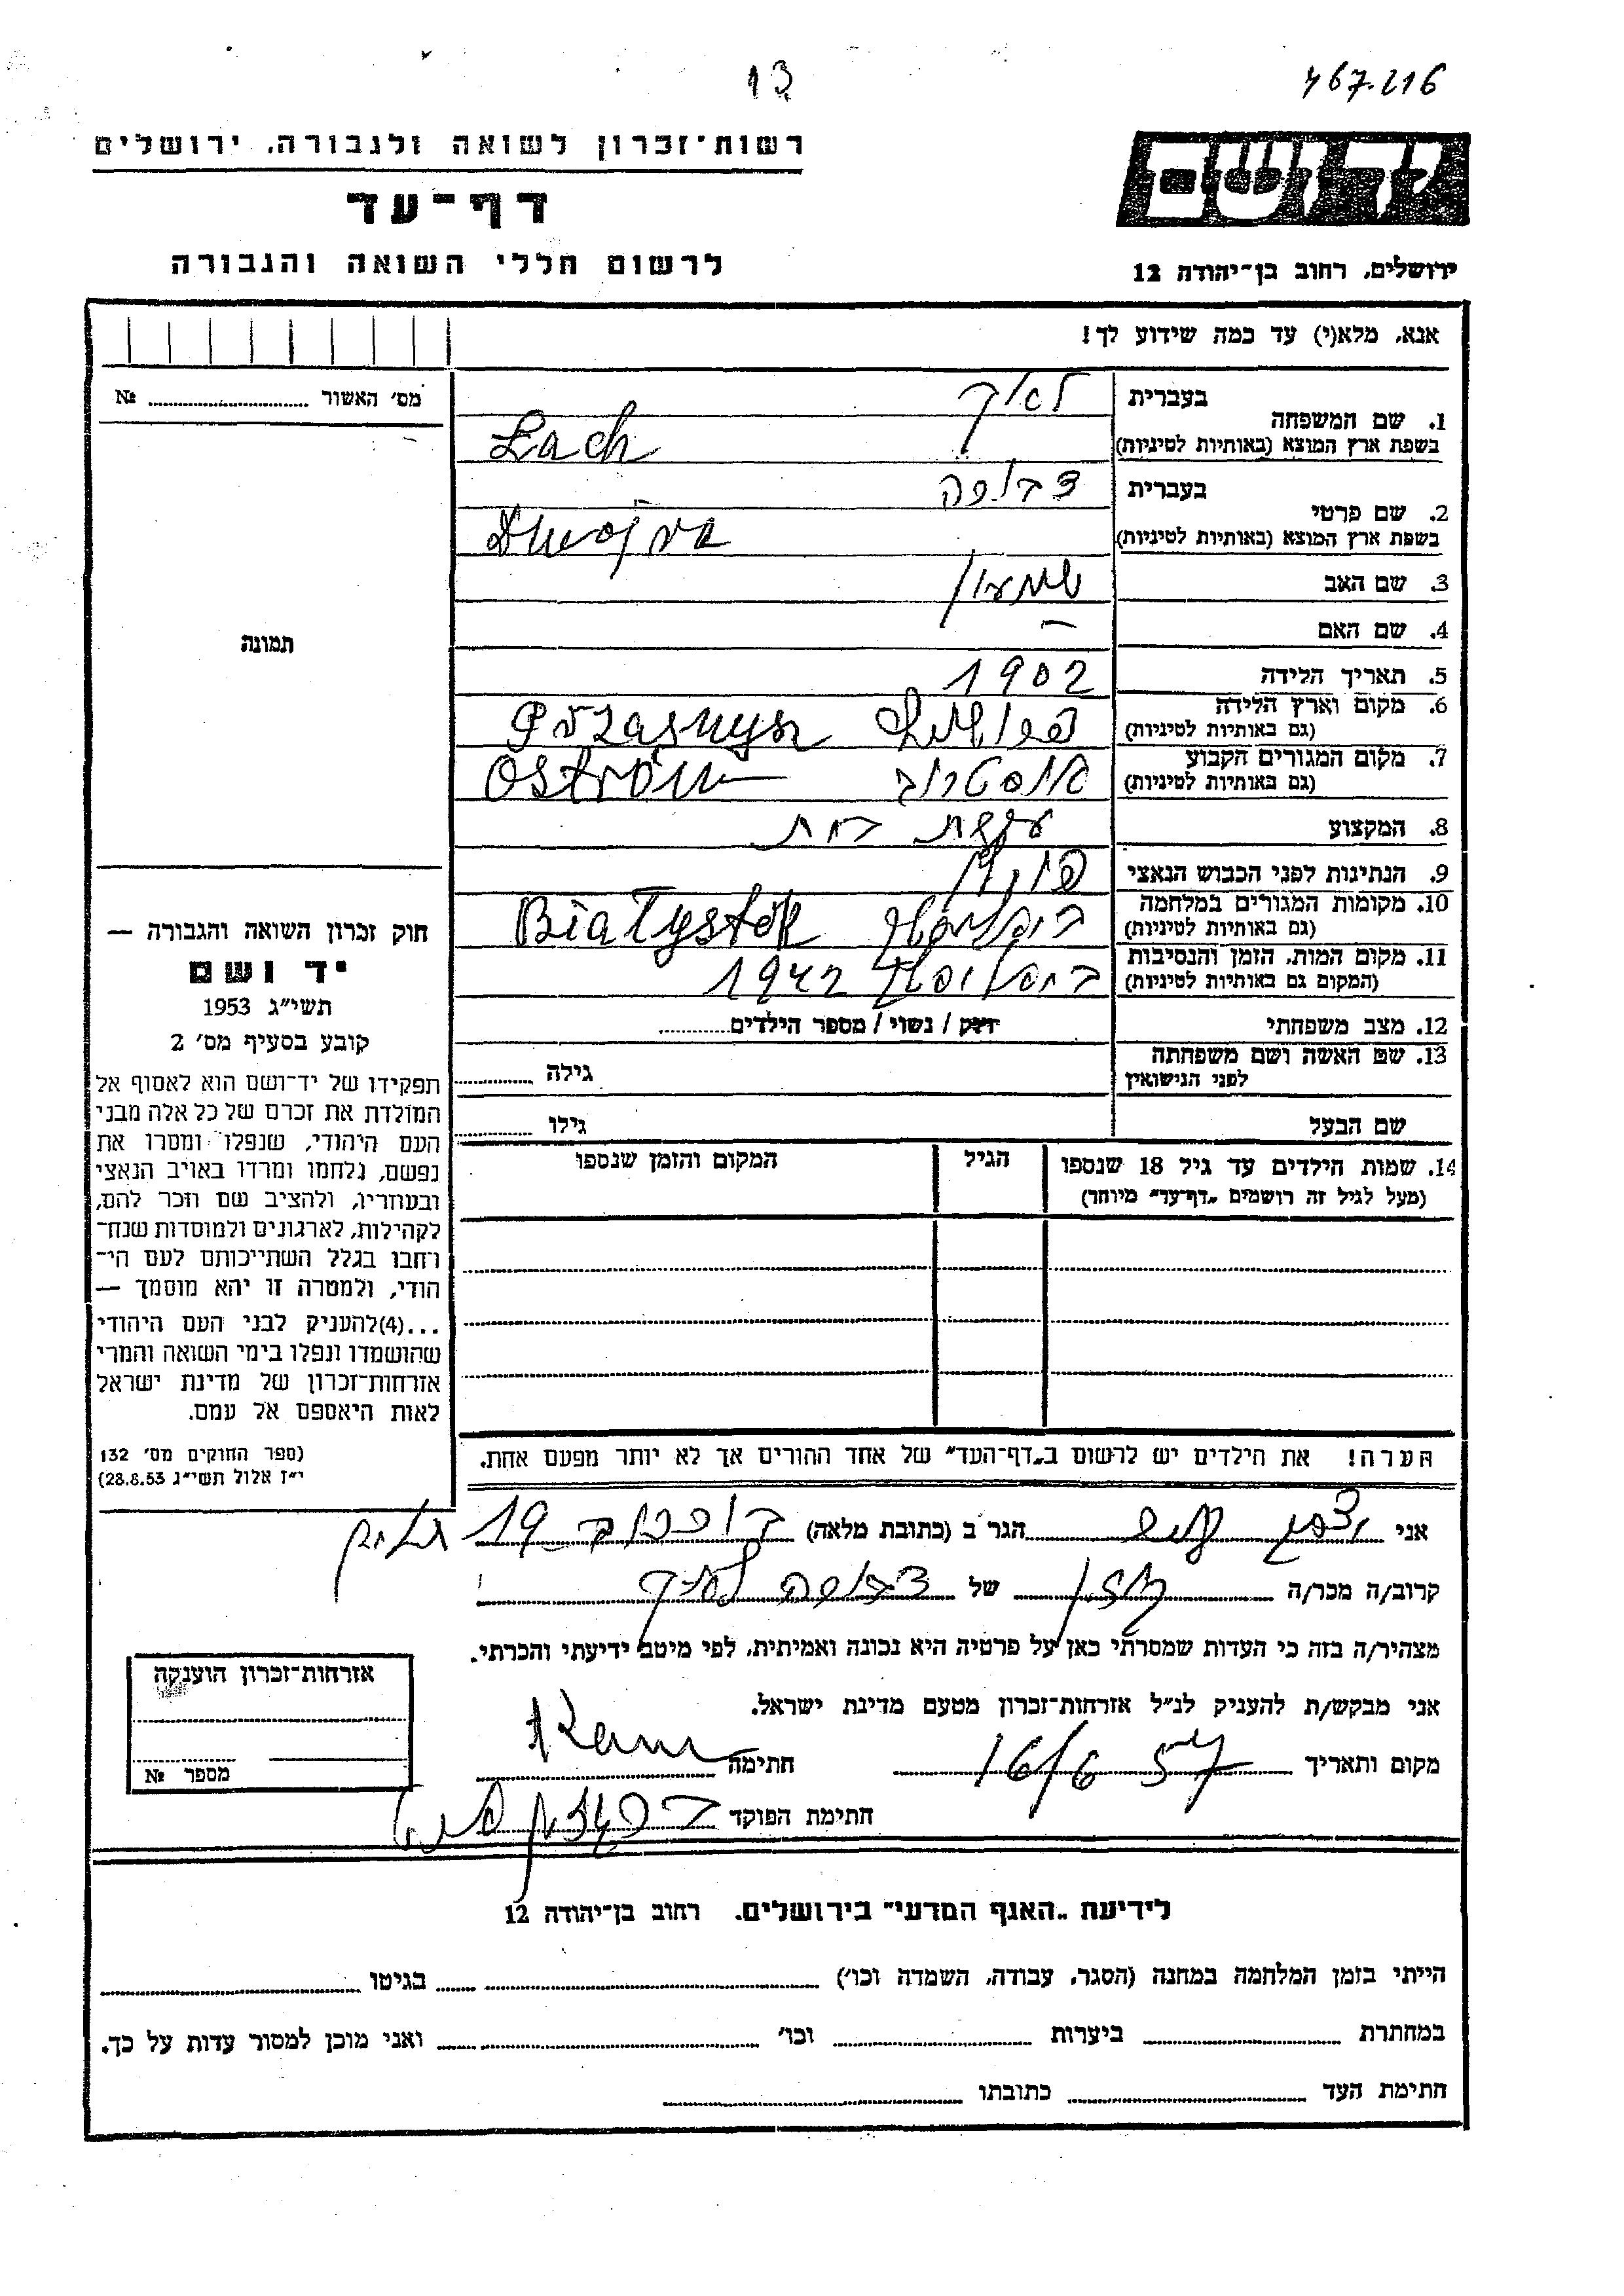 13
467.216
רשות־זכרון לשואה ולגבורה, ירושלים
ידושם
דף־עד
לרשום חללי השואה והגבורה
ירושלים, רחוב בן־יהודה 12
אנא, מלא(י) עד כמה שידוע לך!
מס׳ האשור № 
1. שם המשפחה
בעברית
בשפת ארץ המוצא (באותיות לטיניות)
Lach
2. שם פרטי
בעברית דבורה
בשפת ארץ המוצא (באותיות לטיניות)
Dwojra
3. שם האב שמעון
4. שם האם —
5. תאריך הלידה 1902
6. מקום וארץ הלידה
(גם באותיות לטיניות)
7. מקום המגורים הקבוע אוסטרוב Ostrów
(גם באותיות לטיניות)
8. המקצוע עקרת בית
9. הנתינות לפני הכבוש הנאצי
10. מקומות המגורים במלחמה ביאליסטוק Białystok
(גם באותיות לטיניות)
11. מקום המות, הזמן והנסיבות ביאליסטוק 1942
(המקום גם באותיות לטיניות)
12. מצב משפחתי רוק / נשוי / מספר הילדים
13. שם האשה ושם משפחתה
לפני הנישואין
גילה
שם הבעל
גילו
14. שמות הילדים עד גיל 18 שנספו
(מעל לגיל זה רושמים „דף־עד" מיוחד)
הגיל
המקום והזמן שנספו
תמונה
חוק זכרון השואה והגבורה —
יד ושם
תשי״ג 1953
קובע בסעיף מס׳ 2
תפקידו של יד־ושם הוא לאסוף אל
המולדת את זכרם של כל אלה מבני
העם היהודי, שנפלו ומסרו את
נפשם, נלחמו ומרדו באויב הנאצי
ובעוזריו, ולהציב שם וזכר להם,
לקהילות, לארגונים ולמוסדות שנח־
רחבו בגלל השתייכותם לעם הי־
הודי, ולמטרה זו יהא מוסמך —
...(4)להעניק לבני העם היהודי
שהושמדו ונפלו בימי השואה והמרי
אזרחות־זכרון של מדינת ישראל
לאות היאספם אל עמם.
(ספר החוקים מס׳ 132
י״ז אלול תשי״ג 28.8.53)
הערה! את הילדים יש לרשום ב„דף־העד" של אחד ההורים אך לא יותר מפעם אחת.
אני הגר ב (כתובת מלאה) 19
קרוב/ה מכר/ה של דבורה
מצהיר/ה בזה כי העדות שמסרתי כאן על פרטיה היא נכונה ואמיתית, לפי מיטב ידיעתי והכרתי.
אני מבקש/ת להעניק לנ״ל אזרחות־זכרון מטעם מדינת ישראל.
מקום ותאריך 16/6 57 חתימה
חתימת הפוקד
אזרחות־זכרון הוענקה
מספר №
לידיעת „האגף המדעי" בירושלים, רחוב בן־יהודה 12
הייתי בזמן המלחמה במחנה (הסגר, עבודה, השמדה וכו׳) בגיטו
במחתרת ביערות וכו׳ ואני מוכן למסור עדות על כך.
חתימת העד כתובתו